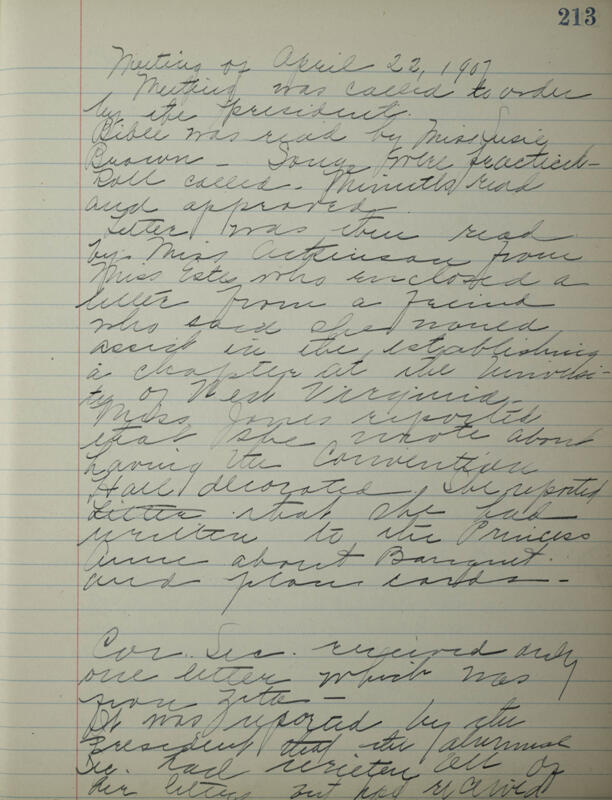 213
Meeting of April 22, 1907
Meeting was called to order
by the president.
Bible was read by Miss Susie
Brown - Songs were practiced -
Roll called - Minutes read
and approved
Letter was then read
by Miss Atkinson from
Miss Estes who enclosed a
letter from a friend
who said she would
assist in the establishing
a chapter at the Universi-
ty of West Virginia -
Miss Jones reported
that she wrote about
having the Convention
Hall decorated. She reported
Letter that she had
written to the Princess
Anne about Banquet.
and plan cards -
Cor. Sec. received only
one letter which was
from Zeta -
It was reported by the
President that the alumnae
Sec. had written all of
her letters but had received